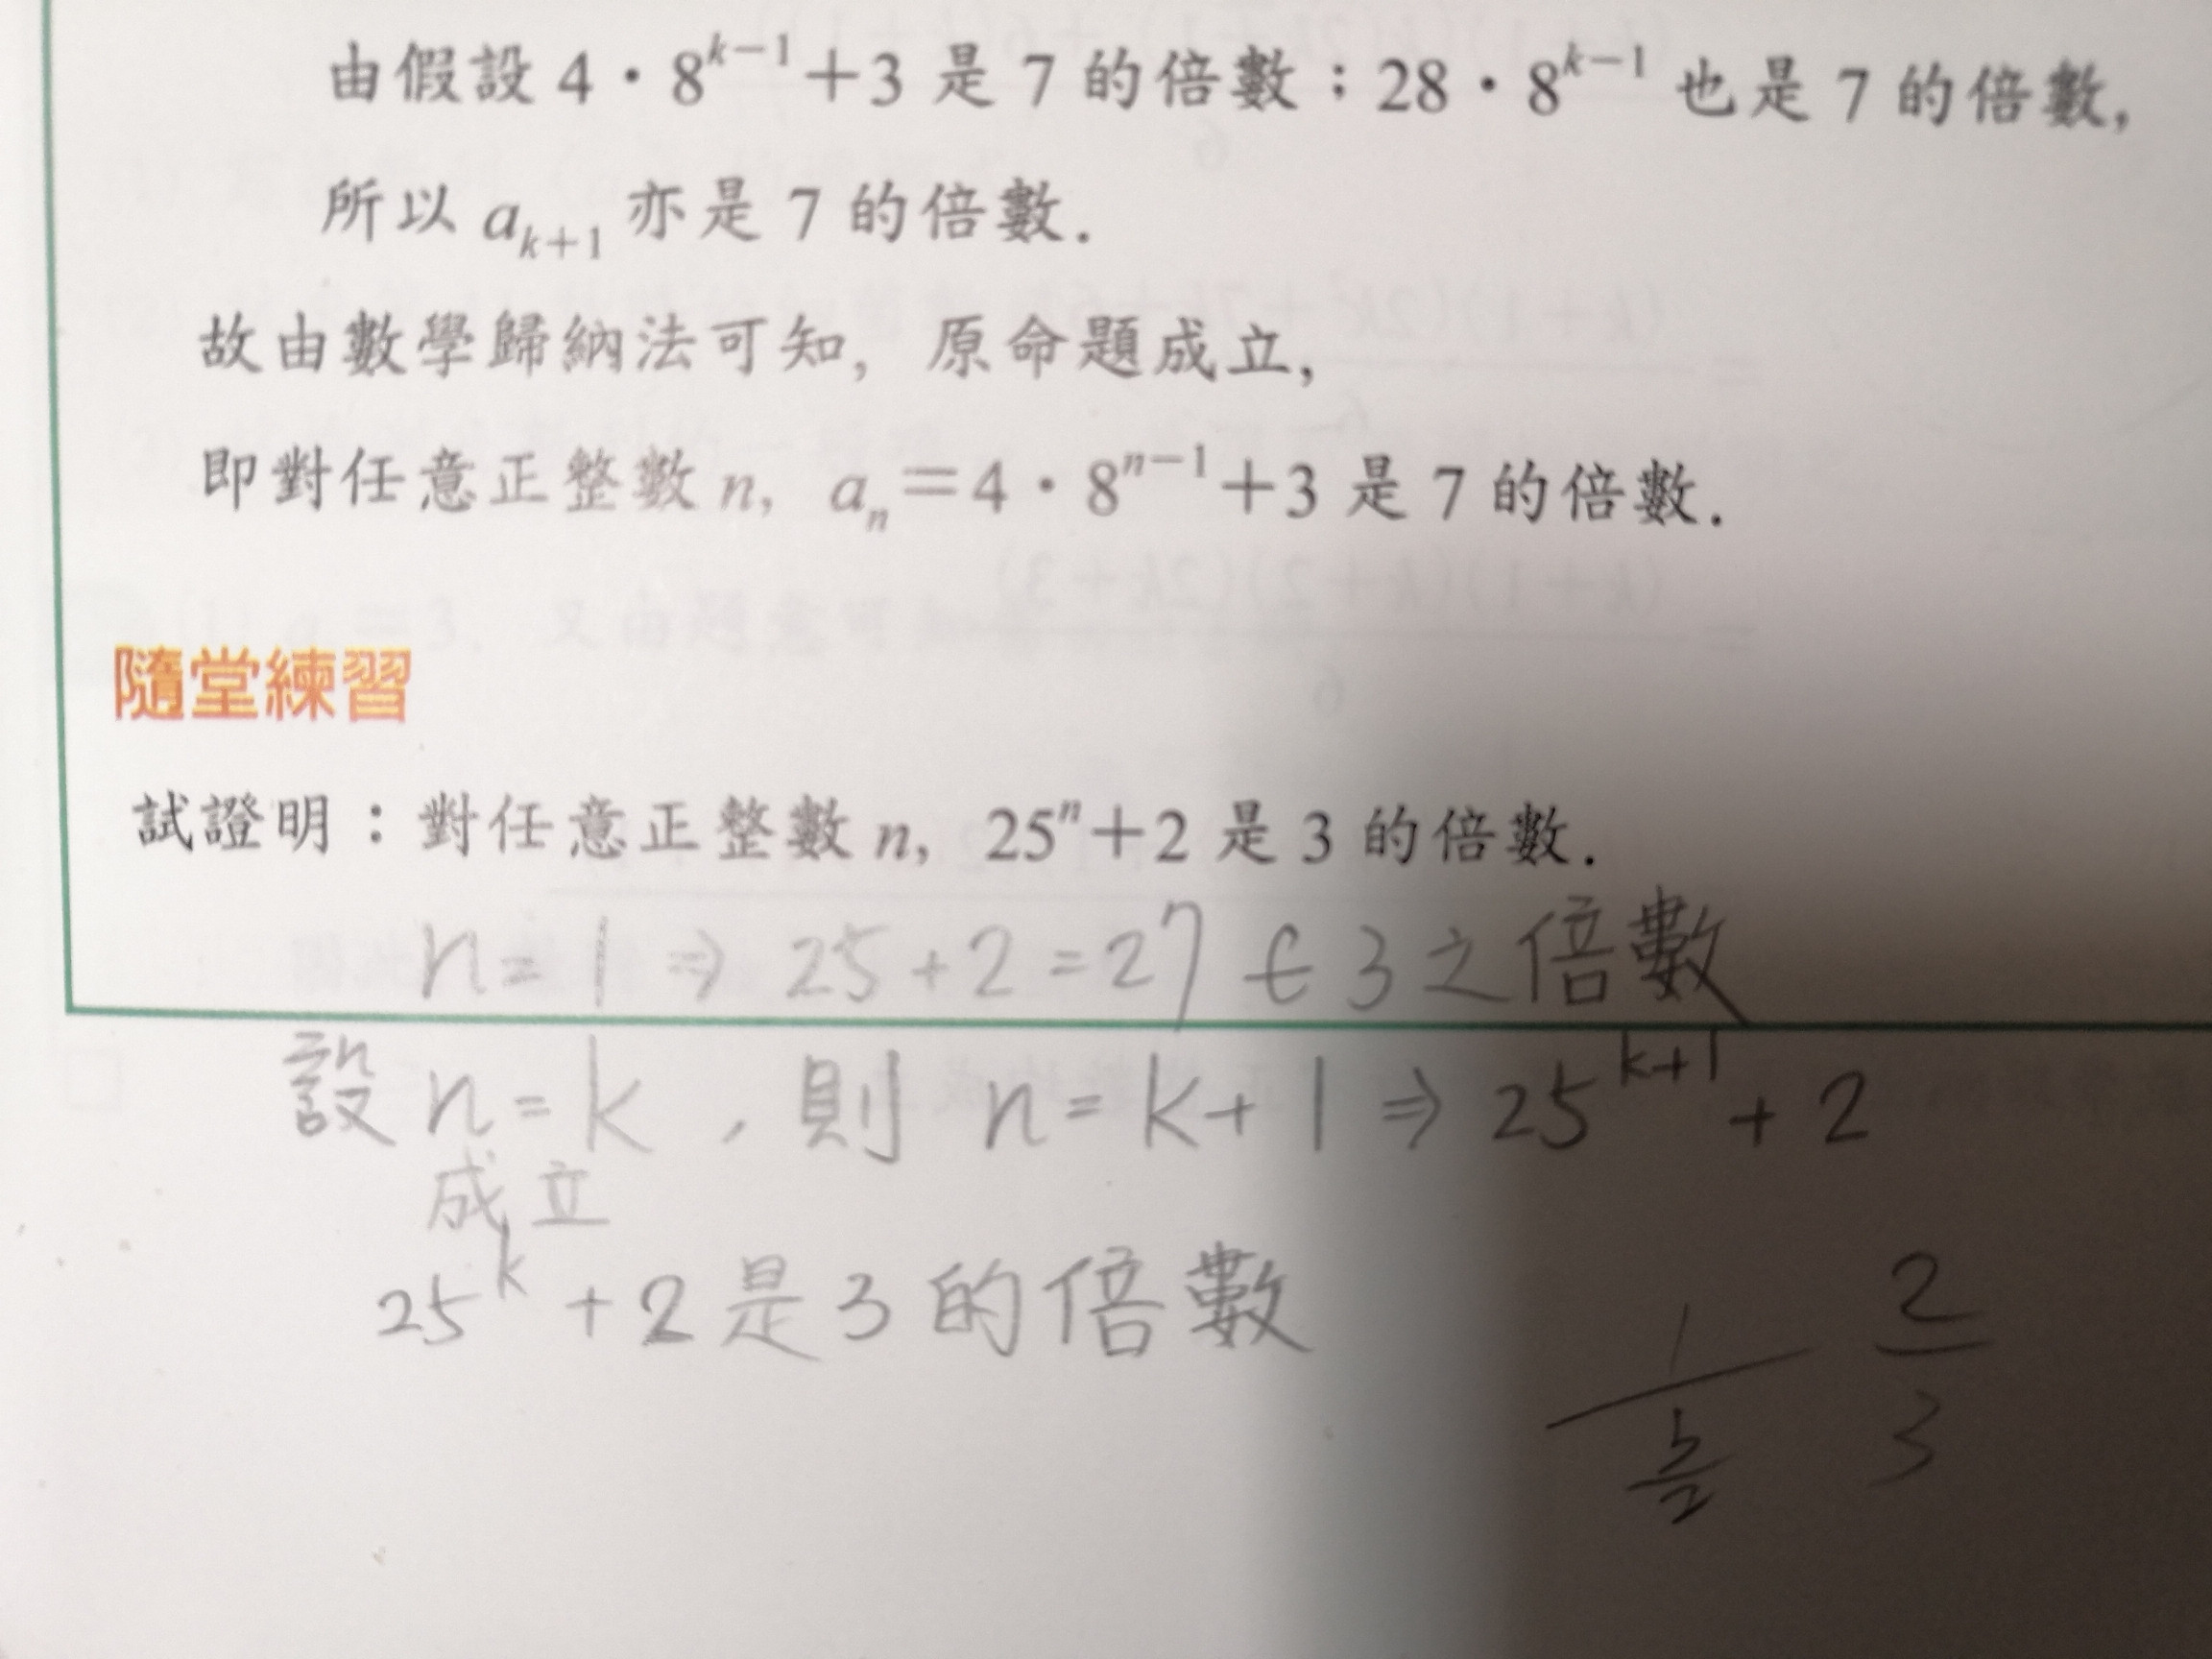 由假設 4・8^{k-1}+3 是 7 的倍數；28・8^{k-1} 也是 7 的倍數，
所以 a_{k+1} 亦是 7 的倍數．
故由數學歸納法可知，原命題成立，
即對任意正整數 n，a_n=4・8^{n-1}+3 是 7 的倍數．
隨堂練習
試證明：對任意正整數 n，25^n+2 是 3 的倍數．
n=1 ⇒ 25+2=27 ∈ 3之倍數
設 n=k，則 n=k+1 ⇒ 25^{k+1}+2
成立
25^k+2是3的倍數
2
1
3